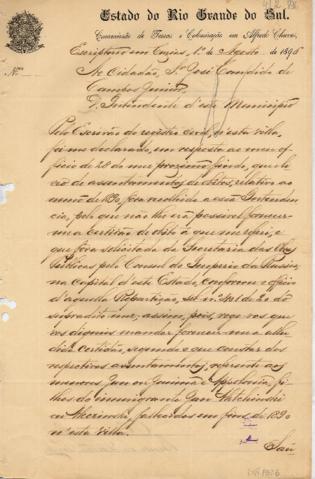 Estado do Rio Grande do Sul.
Commissão de Terras e Colonisação em Alfredo Chaves,
Escriptorio em 1º de Agosto de 1896
Nº
Ao Cidadão, Sr. José Candido de
Campos Junior
D. Intendente d'este Municipio
Pelo Escrivão do registro civil, d'esta villa,
foi-me declarado, em resposta ao meu of-
ficio de 28 do mez proximo findo, que o li-
vro de assentamentos de obitos, relativo ao
anno de 1890, fora recolhido a essa Intenden-
cia, pelo que não lhe era possivel fornecer
uma certidão de obito a que me referi, e
que fora solicitada da Secretaria das Obras
Publicas pelo Consul do Imperio da Russia,
na Capital d'este Estado, conforme o officio
d'aquella Repartição, sob nº de 20 do
supradito mez; assim, pois, rogo-vos que
vos digneis mandar fornecer-me a allu-
dida certidão, segundo o que constar dos
respectivos assentamentos, referente aos
menores Jan ou e fi-
lhos do immigrante Jan
ou fallecidos em fins de 1890
n'esta villa.
Sau